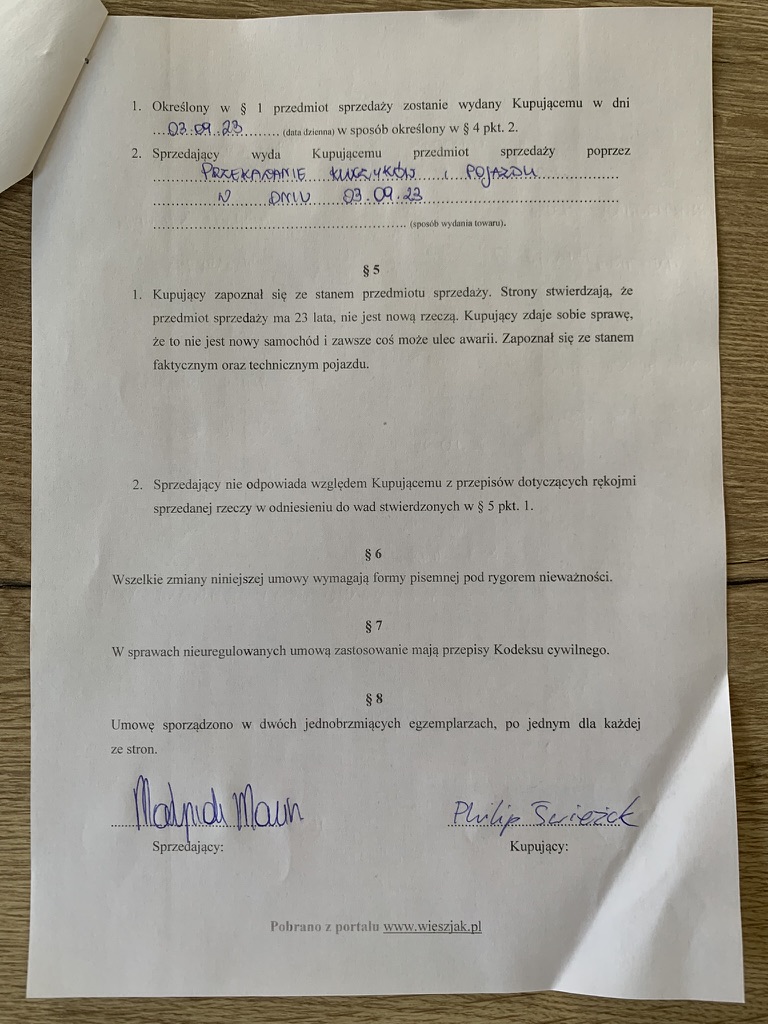 1. Określony w § 1 przedmiot sprzedaży zostanie wydany Kupującemu w dni
...03.09.23......... (data dzienna) w sposób określony w § 4 pkt. 2.
2. Sprzedający wyda Kupującemu przedmiot sprzedaży poprzez
PRZEKAZANIE KLUCZYKÓW I POJAZDU
W DNIU 03.09.23
(sposób wydania towaru).
§ 5
1. Kupujący zapoznał się ze stanem przedmiotu sprzedaży. Strony stwierdzają, że
przedmiot sprzedaży ma 23 lata, nie jest nową rzeczą. Kupujący zdaje sobie sprawę,
że to nie jest nowy samochód i zawsze coś może ulec awarii. Zapoznał się ze stanem
faktycznym oraz technicznym pojazdu.
2. Sprzedający nie odpowiada względem Kupującemu z przepisów dotyczących rękojmi
sprzedanej rzeczy w odniesieniu do wad stwierdzonych w § 5 pkt. 1.
§ 6
Wszelkie zmiany niniejszej umowy wymagają formy pisemnej pod rygorem nieważności.
§ 7
W sprawach nieuregulowanych umową zastosowanie mają przepisy Kodeksu cywilnego.
§ 8
Umowę sporządzono w dwóch jednobrzmiących egzemplarzach, po jednym dla każdej
ze stron.
Philip
Sprzedający: Kupujący:
Pobrano z portalu www.wieszjak.pl